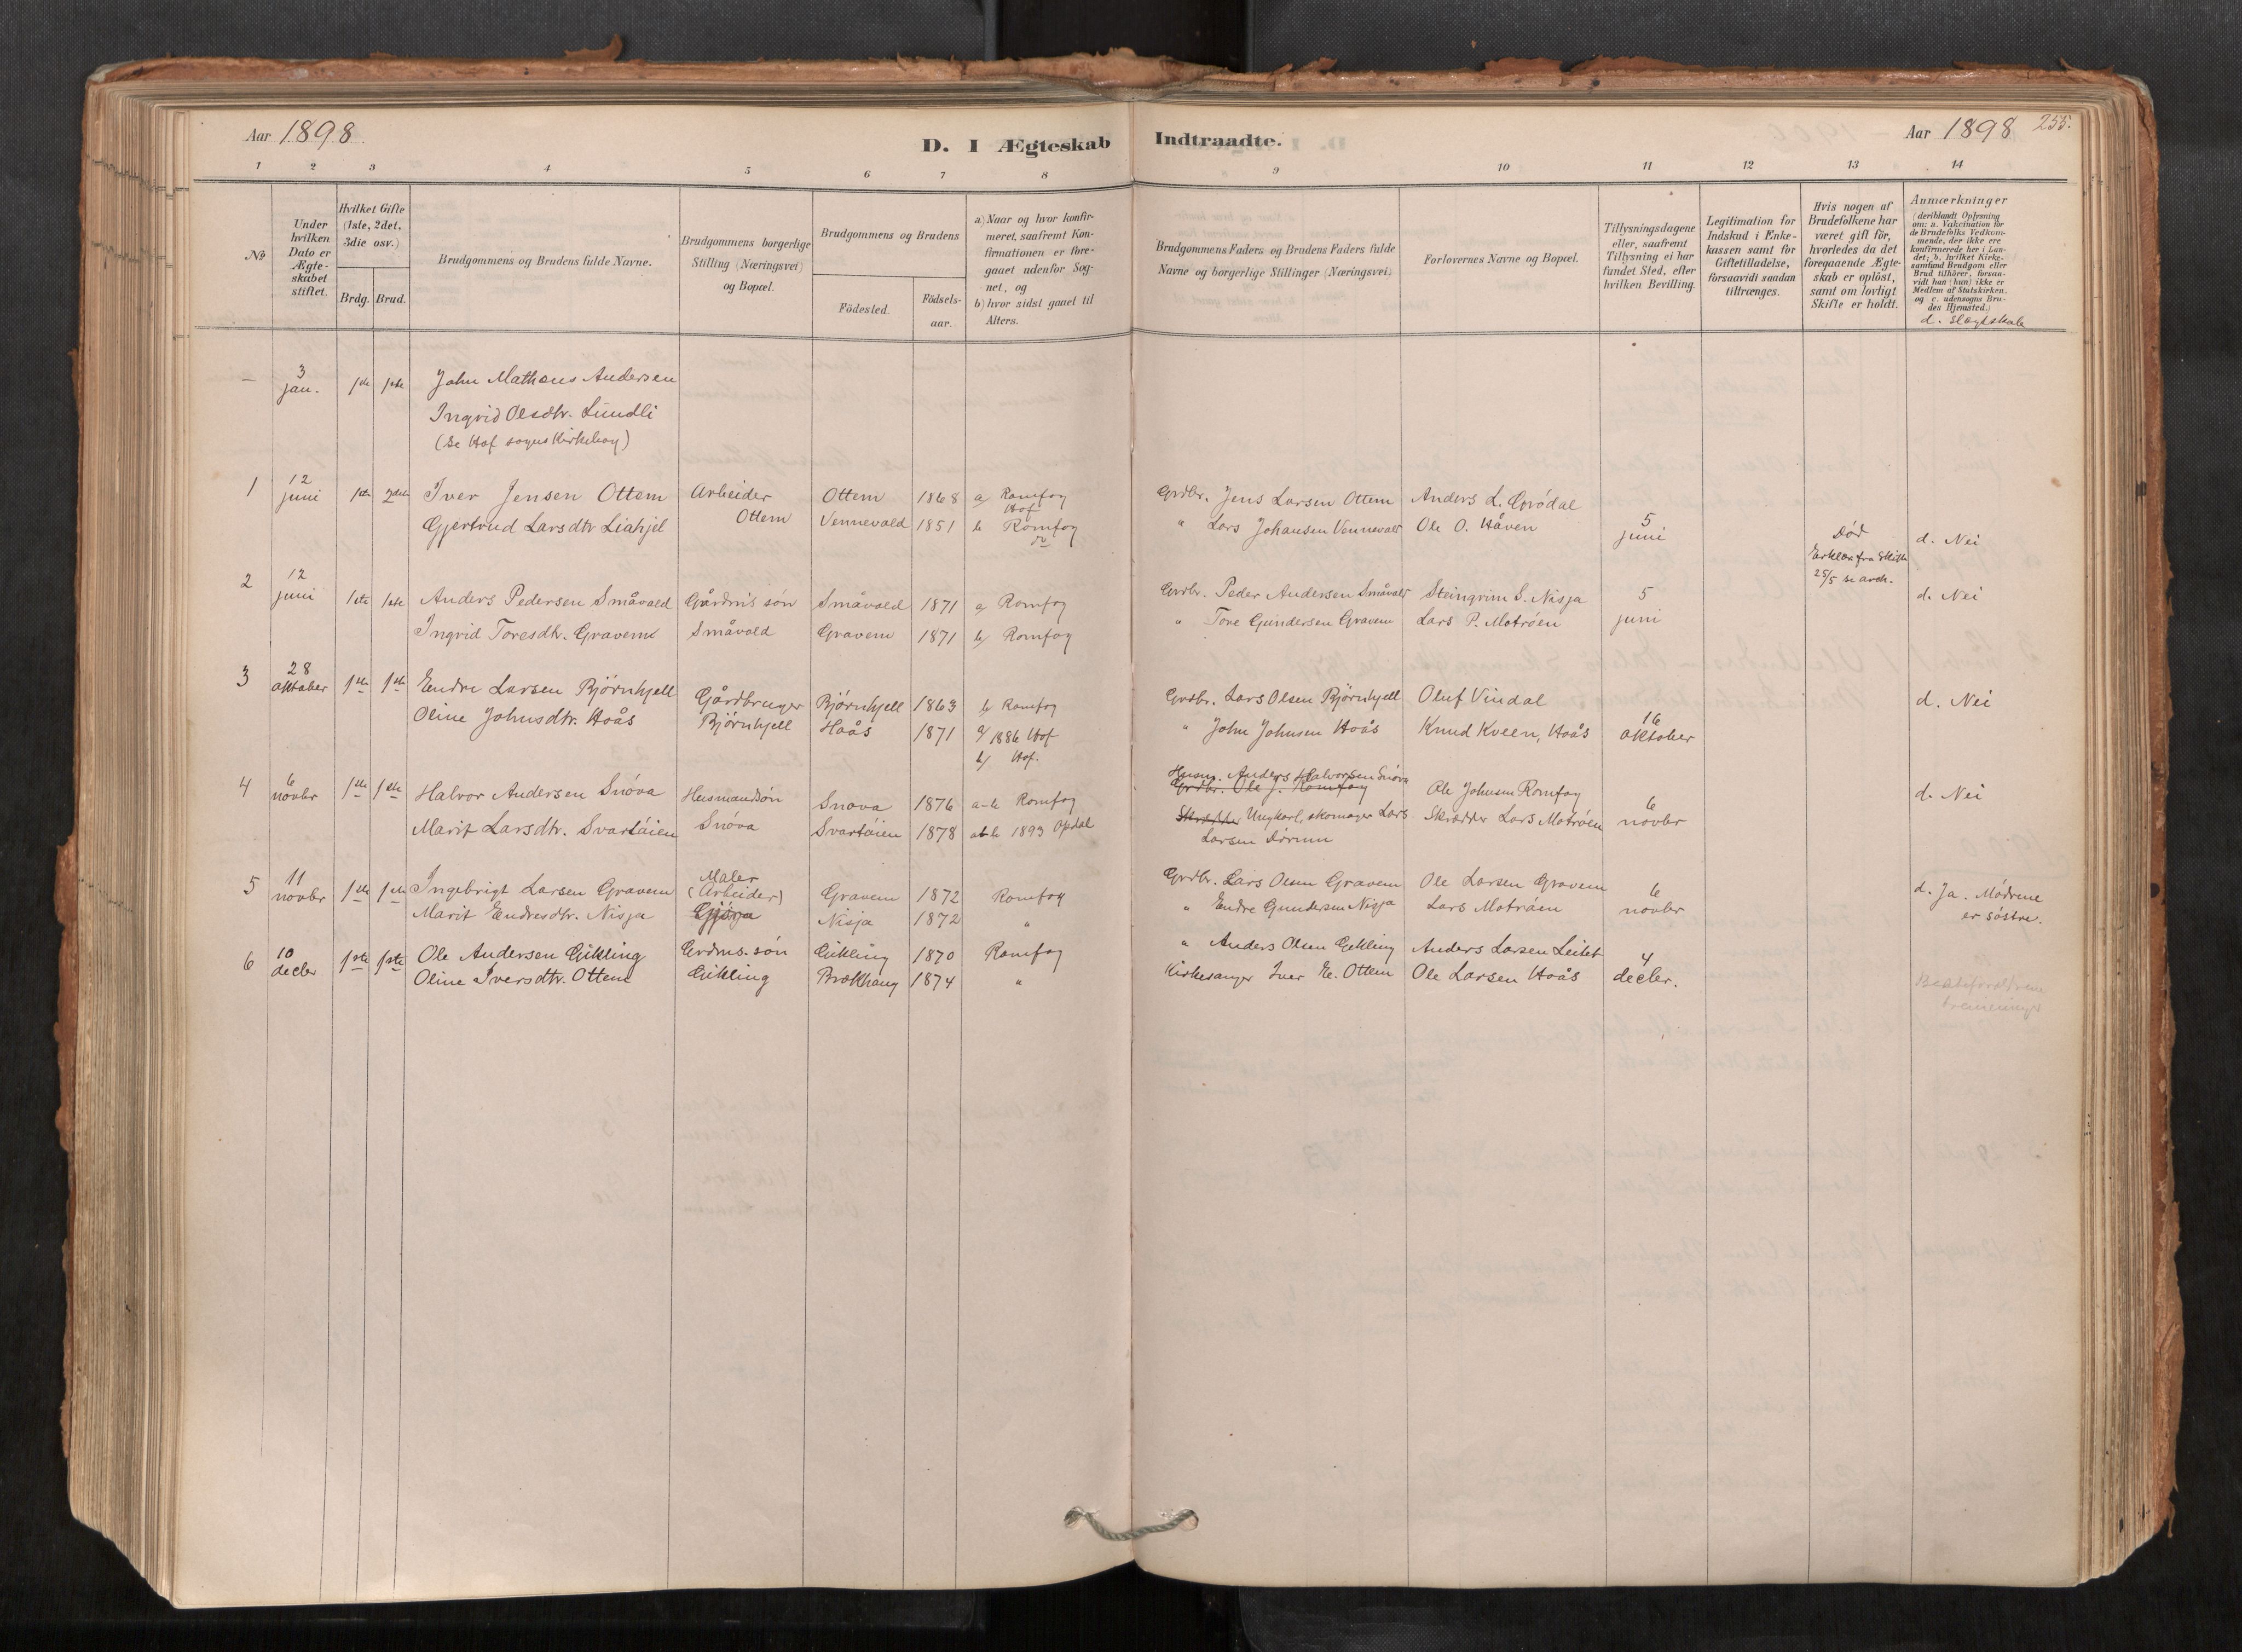 Aar 1898
D. I Ægteskab
Indtraadte.
Aar 1898
255.
1 2 3 4 5 6 7 8
9 10 11 12 13 14
No
Under hvilken Dato er Ægteskabet stiftet.
Hvilket Gifte (1ste, 2det, 3die osv.)
Brdg. Brud.
Brudgommens og Brudens fulde Navne.
Brudgommens borgerlige Stilling (Næringsvei) og Bopæl.
Brudgommens og Brudens
Födested.
Födselsaar.
a) Naar og hvor konfirmeret, saafremt Konfirmationen er foregaaet udenfor Sognet, og
b) hvor sidst gaaet til Alters.
Brudgommens Faders og Brudens Faders fulde Navne og borgerlige Stillinger (Næringsvei)
Forlovernes Navne og Bopæl.
Tillysningsdagene eller, saafremt Tillysning ei har fundet Sted, efter hvilken Bevilling.
Legitimation for Indskud i Enkekassen samt for Giftetilladelse, forsaavidt saadan tiltrænges.
Hvis nogen af Brudefolkene har været gift för, hvorledes da det foregaaende Ægteskab er oplöst, samt om lovligt Skifte er holdt.
Anmærkninger
(deriblandt Oplysning om: a. Vakcination for de Brudefolks Vedkommende, der ikke ere konfirmerede her i Landet; b. hvilket Kirkesamfund Brudgom eller Brud tilhörer, forsaavidt han (hun) ikke er Medlem af Statskirken, og c. udensogns Brudes Hjemsted.)
d. Slægtskab
- 3 jan. 1ste 1ste John Mathæus Andersen
Ingrid Olsdtr. Lundli
(Se Hof sogns Kirkebog)
1 12 juni 1ste 2det Iver Jensen Ottem Arbeider Ottem 1868 a Romfog Hof Grdbr. Jens Larsen Ottem Anders L. Grödal
Gjertrud Larsdtr Liahjel Ottem Vennevald 1851 b Romfog do " Lars Johansen Vennevald Ole O. Håven 5 juni Död d. Nei
Erklær. fra Skifte 25/5 se arch.
2 12 juni 1ste 1ste Anders Pedersen Småvald Gårdm's søn Småvald 1871 a) Romfog Grdbr. Peder Andersen Småvald Steingrim S. Nisja 5 d. Nei
Ingrid Toresdtr. Gravem Småvald Gravem 1871 b) Romfog " Tore Gundersen Gravem Lars P. Motröen juni
3 28 oktober 1ste 1ste Endre Larsen Björnhjell Gårdbruger Björnhjell 1863 b Romfog Grdbr. Lars Olsen Björnhjell Oluf Vindal d. Nei
Oline Johnsdtr. Hoås Björnhjell Hoås 1871 a) 1886 Hof " John Johnsen Hoås Knud Kveen, Hoås 16 oktober
b) Hof.
4 6 novbr 1ste 1ste Halvor Andersen Snöva Husmandsön Snöva 1876 a-b Romfog Husm. Anders Halvorsen Snöva
Grdbr. Ole J. Romfog Ole Johnsen Romfog d. Nei
Marit Larsdtr. Svartöien Snöva Svartöien 1878 a b 1893 Opdal Skrædder Ungkarl, skomager Lars Skrædder Lars Motröen 6 novbr
Larsen Dörum
5 11 novbr 1ste 1ste Ingebrigt Larsen Gravem Maler (Arbeider) Gravem 1872 Romfog Grdbr. Lars Olsen Gravem Ole Larsen Gravem 6 d. Ja. Mödrene
Marit Endresdtr. Nisja Gjöra Nisja 1872 " " Endre Gundersen Nisja Lars Motröen novbr er söstre.
6 10 decbr 1ste 1ste Ole Andersen Gikling Grdms. sön Gikling 1870 Romfog " Anders Olsen Gikling Anders Larsen Leitet 4
Oline Iversdtr. Ottem Gikling Brækhaug 1874 " Kirkesanger Iver E. Ottem Ole Larsen Hoås decbr.
Bedsteforældrene